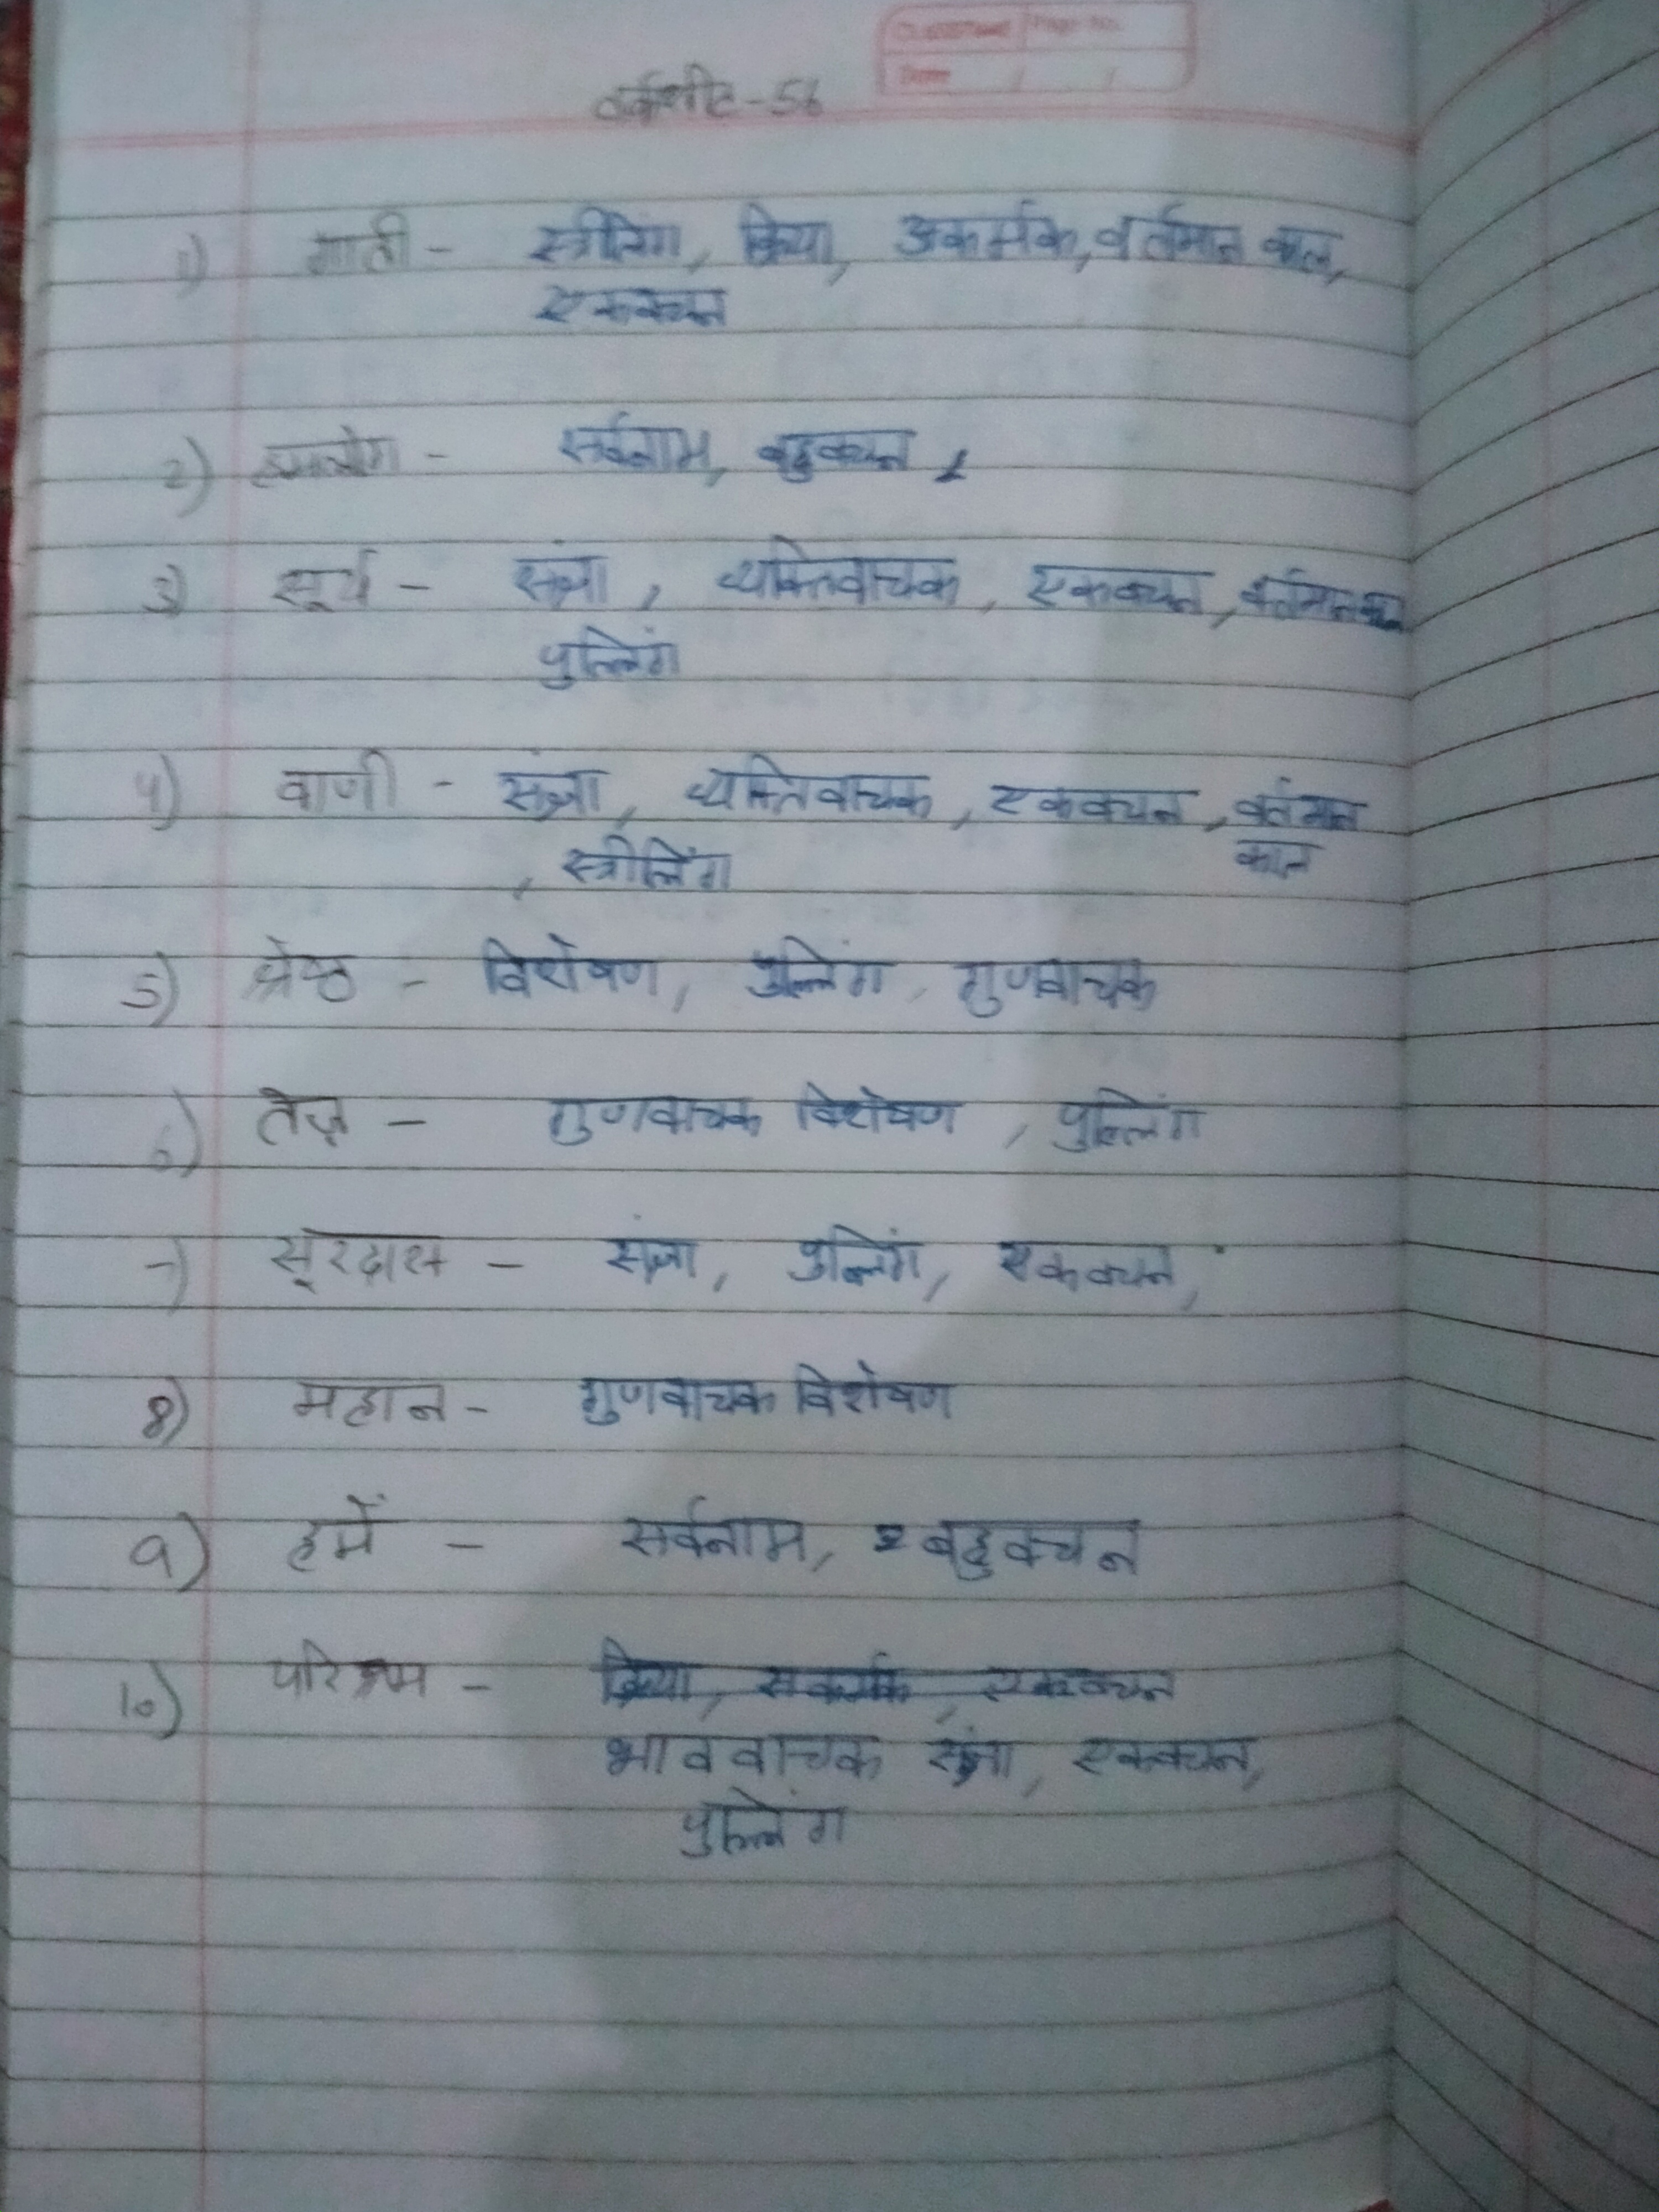 Classmate Page No.
Date / /
वर्कशीट-56
1) गाती - स्त्रीलिंग, क्रिया, अकर्मक, वर्तमान काल,
एकवचन
2) हमलोग - सर्वनाम, बहुवचन,
3) सूर्य - संज्ञा, व्यक्तिवाचक, एकवचन, वर्तमान काल
पुल्लिंग
4) वाणी - संज्ञा, व्यक्तिवाचक, एकवचन, वर्तमान
काल
, स्त्रीलिंग
5) श्रेष्ठ - विशेषण, पुल्लिंग, गुणवाचक
6) तेज़ - गुणवाचक विशेषण, पुल्लिंग
7) सूरदास - संज्ञा, पुल्लिंग, एकवचन,
8) महान - गुणवाचक विशेषण
9) हमें - सर्वनाम, बहुवचन
10) परिश्रम - क्रिया, सकर्मक, एकवचन
भाववाचक संज्ञा, एकवचन,
पुल्लिंग